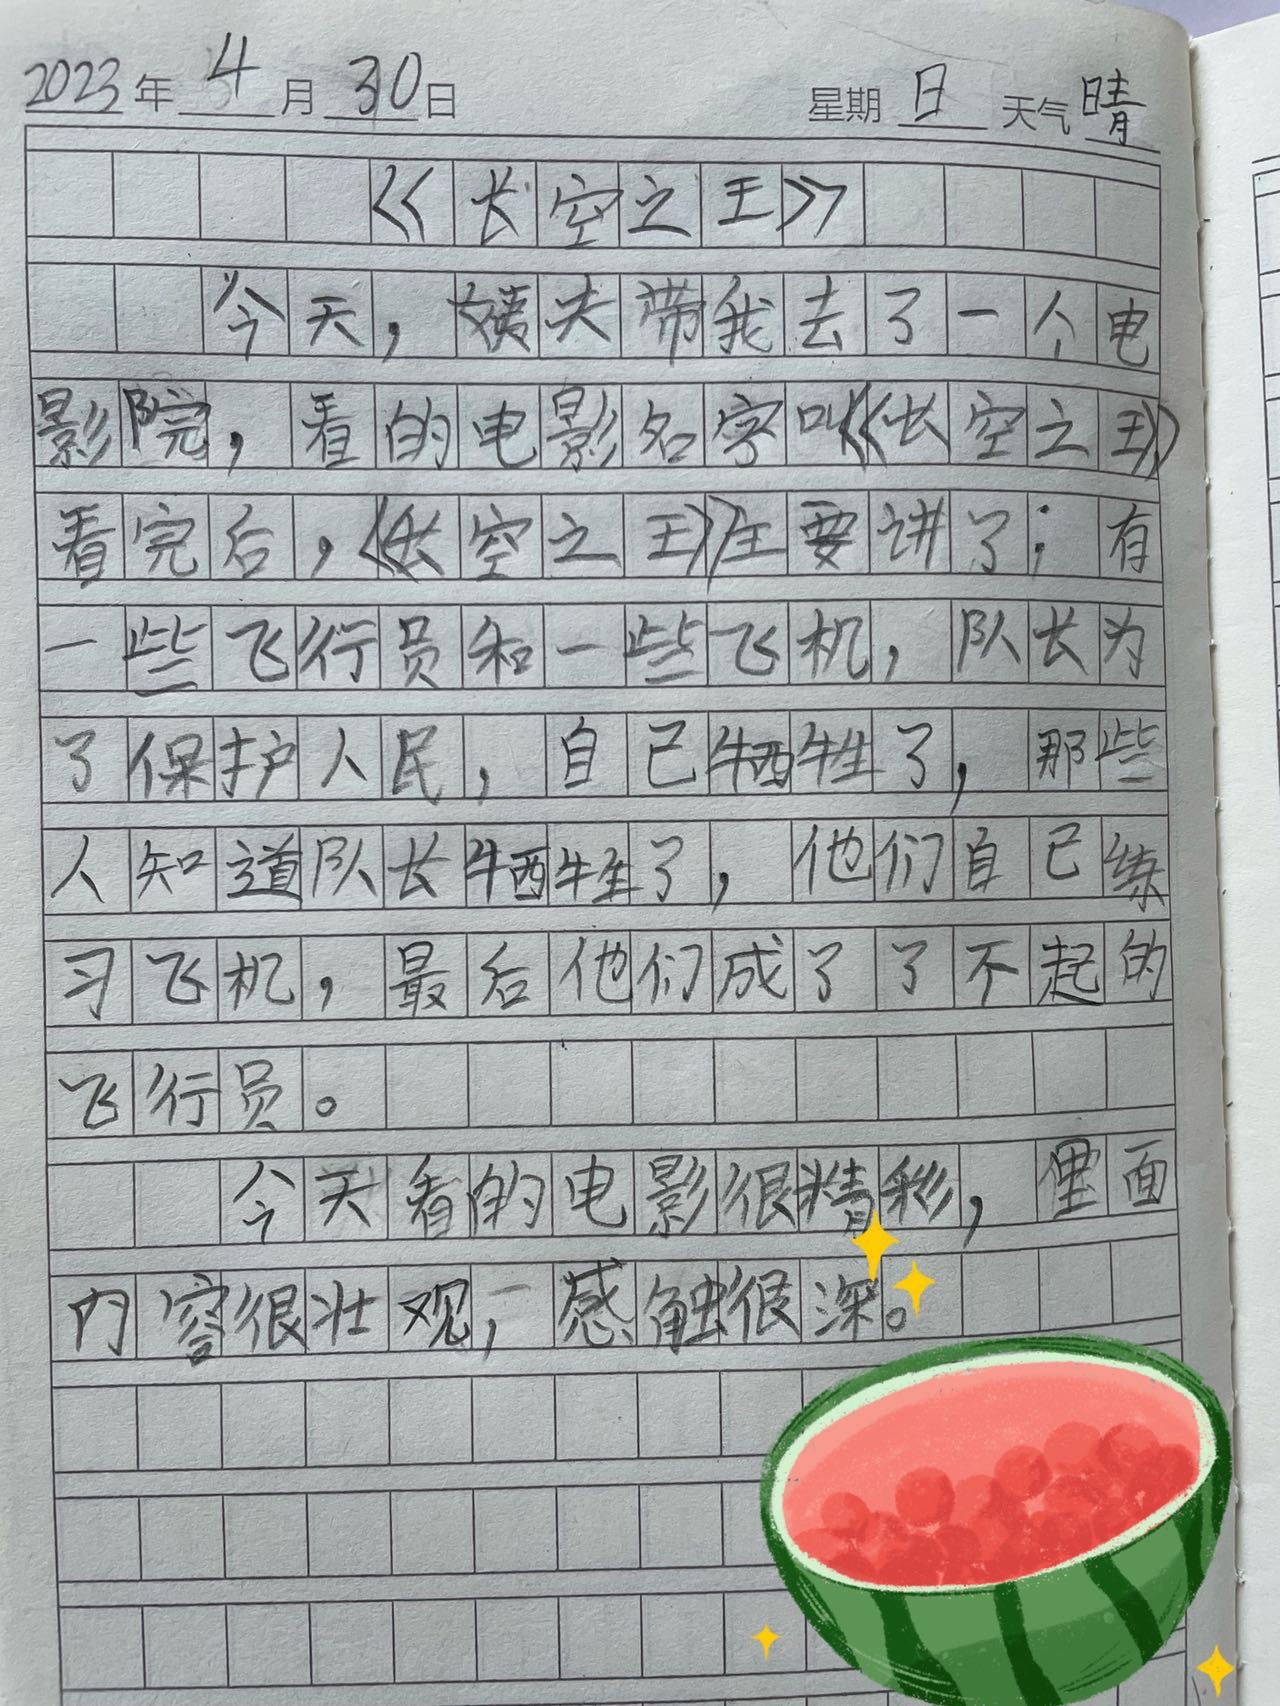 2023年4月30日 星期日 天气晴
《长空之王》
今天，姨夫带我去了一个电
影院，看的电影名字叫《长空之王》
看完后，《长空之王》主要讲了；有
一些飞行员和一些飞机，队长为
了保护人民，自己牺牲了，那些
人知道队长牺牲了，他们自己练
习飞机，最后他们成了了不起的
飞行员。
今天看的电影很精彩，里面
内容很壮观，感触很深。